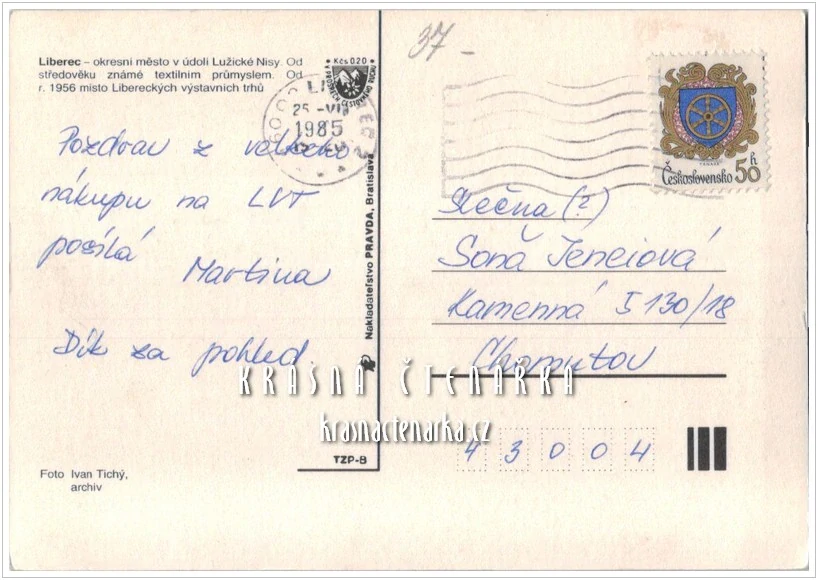 37-
Liberec – okresní město v údolí Lužické Nisy. Od
středověku známé textilním průmyslem. Od
r. 1956 místo Libereckých výstavních trhů
Kčs 0.20
25.-VII
1985
Československo 50 h
Pozdrav z velkého
nákupu na LVT
posílá
Martina
Dík za pohled.
Nakladatelství PRAVDA, Bratislava
Slečna (?)
Soňa Jeneiová
Kamenná 5130/18
Chomutov
43004
KRÁSNÁ ČTENÁŘKA
krasnactenarka.cz
TZP-8
Foto Ivan Tichý,
archiv